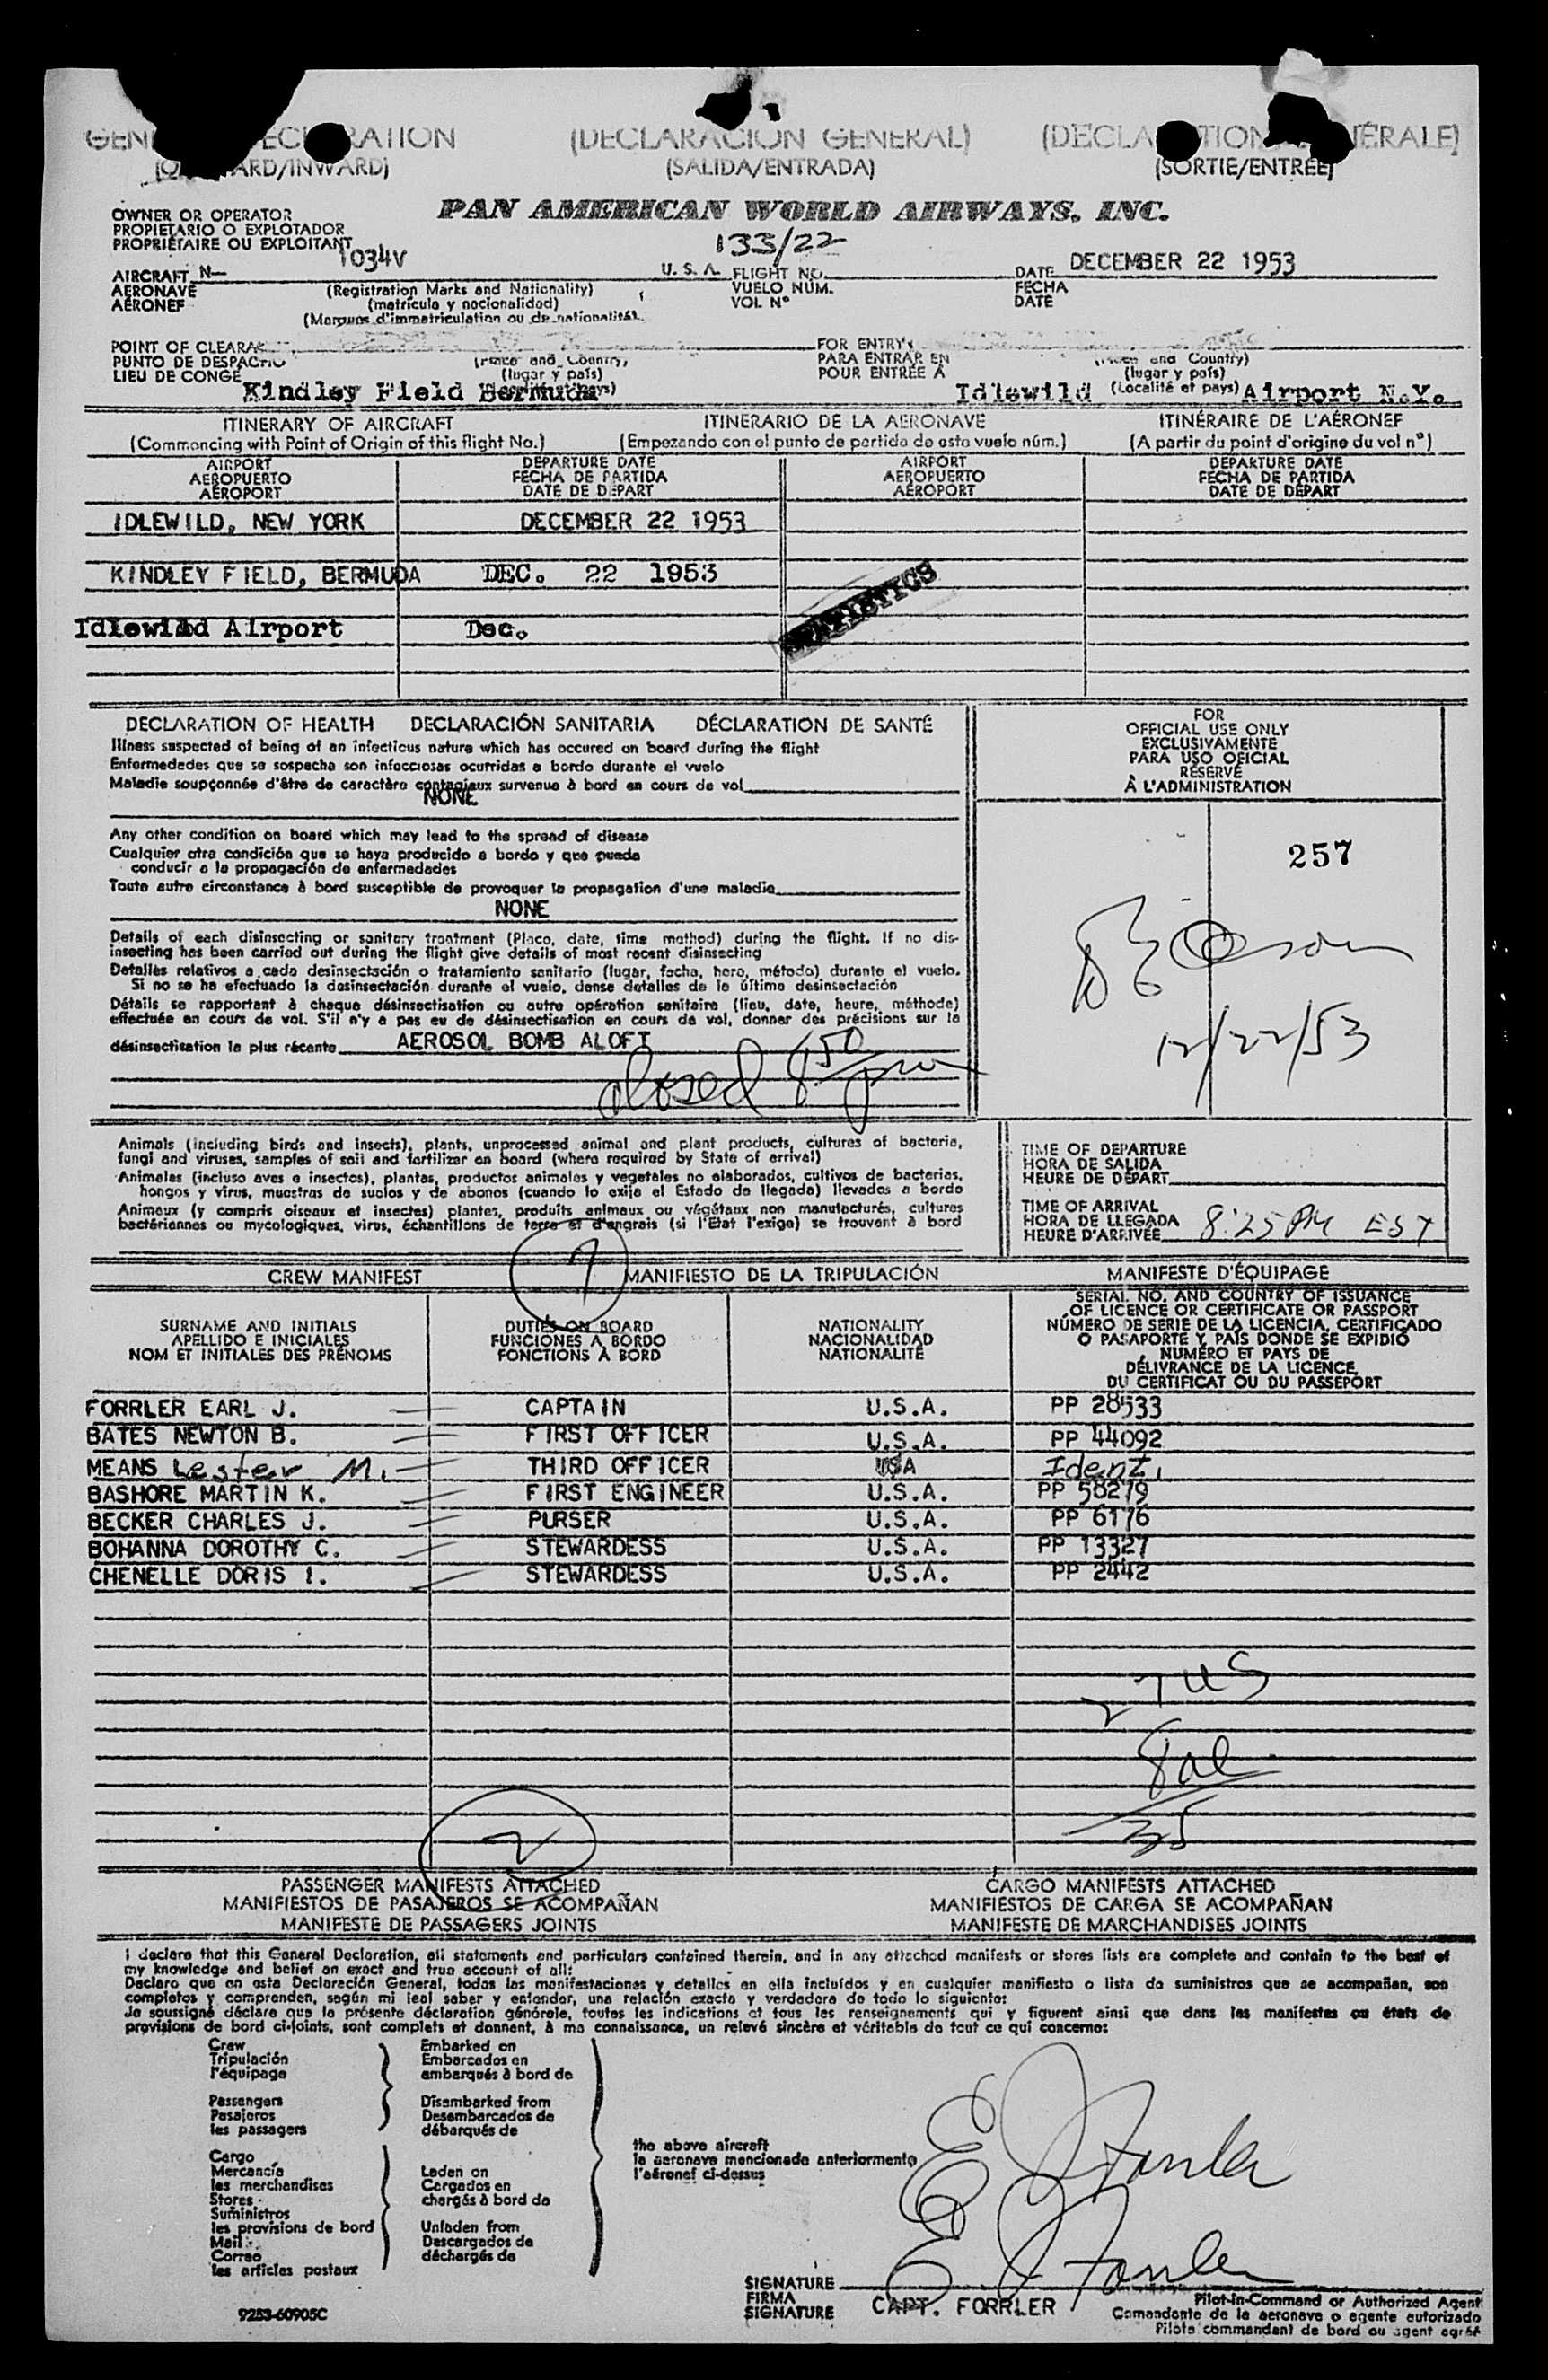 (DECLARACIÓN GENERAL)
(SALIDA/ENTRADA)
(SORTIE/ENTRÉE)
OWNER OR OPERATOR
PROPIETARIO O EXPLOTADOR
PROPRIÉTAIRE OU EXPLOITANT
PAN AMERICAN WORLD AIRWAYS, INC.
133/22
AIRCRAFT N- 1034V U. S. A. FLIGHT NO. DATE DECEMBER 22 1953
AERONAVE (Registration Marks and Nationality) VUELO NÚM. FECHA
AÉRONEF (matrícula y nacionalidad) VOL N° DATE
(Marques d'immatriculation ou de nationalité)
POINT OF FOR ENTRY
PUNTO DE DESPACHO (Place and Country) PARA ENTRAR EN and Country)
LIEU DE CONGÉ (lugar y país) POUR ENTRÉE À (lugar y país)
Kindley Field Bermuda Idlewild (Localité et pays) Airport N.Y.
ITINERARY OF AIRCRAFT ITINERARIO DE LA AERONAVE ITINÉRAIRE DE L'AÉRONEF
(Commencing with Point of Origin of this flight No.) (Empezando con el punto de partida de este vuelo núm.) (A partir du point d'origine du vol n°)
AIRPORT DEPARTURE DATE AIRPORT DEPARTURE DATE
AEROPUERTO FECHA DE PARTIDA AEROPUERTO FECHA DE PARTIDA
AÉROPORT DATE DE DÉPART AÉROPORT DATE DE DÉPART
IDLEWILD, NEW YORK DECEMBER 22 1953
KINDLEY FIELD, BERMUDA DEC. 22 1953
STATISTICS
Idlewild Airport Dec.
DECLARATION OF HEALTH DECLARACIÓN SANITARIA DÉCLARATION DE SANTÉ
Illness suspected of being of an infecticus nature which has occured on board during the flight
Enfermedades que se sospecha son infecciosas ocurridas a bordo durante el vuelo
Maladie soupçonnée d'être de caractère contagieux survenue à bord en cours de vol
NONE
Any other condition on board which may lead to the spread of disease
Cualquier otra condición que se haya producido a bordo y que pueda
conducir a la propagación de enfermedades
Toute autre circonstance à bord susceptible de provoquer la propagation d'une maladie
NONE
Details of each disinsecting or sanitary treatment (Place, date, time method) during the flight. If no dis-
insecting has been carried out during the flight give details of most recent disinsecting
Detalles relativos a cada desinsectación o tratamiento sanitario (lugar, fecha, hora, método) durante el vuelo.
Si no se ha efectuado la desinsectación durante el vuelo, dense detalles de la última desinsectación
Détails se rapportant à chaque désinsectisation ou autre opération sanitaire (lieu, date, heure, méthode)
effectuée en cours de vol. S'il n'y a pas eu de désinsectisation en cours de vol, donner des précisions sur la
désinsectisation la plus récente AEROSOL BOMB ALOFT
closed 8 50 pm
FOR
OFFICIAL USE ONLY
EXCLUSIVAMENTE
PARA USO OFICIAL
RÉSERVÉ
À L'ADMINISTRATION
257
12/22/53
Animals (including birds and insects), plants, unprocessed animal and plant products, cultures of bacteria,
fungi and viruses, samples of soil and fertilizer on board (where required by State of arrival)
Animales (incluso aves e insectos), plantas, productos animales y vegetales no elaborados, cultivos de bacterias,
hongos y virus, muestras de suelos y de abonos (cuando lo exija el Estado de llegada) llevados a bordo
Animaux (y compris oiseaux et insectes) plantes, produits animaux ou végétaux non manufacturés, cultures
bactériennes ou mycologiques, virus, échantillons de terre et d'engrais (si l'État l'exige) se trouvant à bord
TIME OF DEPARTURE
HORA DE SALIDA
HEURE DE DÉPART
TIME OF ARRIVAL
HORA DE LLEGADA
HEURE D'ARRIVÉE 8:25 PM EST
7
CREW MANIFEST MANIFIESTO DE LA TRIPULACIÓN MANIFESTE D'ÉQUIPAGE
SURNAME AND INITIALS
APELLIDO E INICIALES
NOM ET INITIALES DES PRÉNOMS
DUTIES ON BOARD
FUNCIONES A BORDO
FONCTIONS À BORD
NATIONALITY
NACIONALIDAD
NATIONALITÉ
SERIAL NO. AND COUNTRY OF ISSUANCE
OF LICENCE OR CERTIFICATE OR PASSPORT
NÚMERO DE SERIE DE LA LICENCIA, CERTIFICADO
O PASAPORTE Y PAÍS DONDE SE EXPIDIÓ
NUMÉRO ET PAYS DE
DÉLIVRANCE DE LA LICENCE,
DU CERTIFICAT OU DU PASSEPORT
FORRLER EARL J. CAPTAIN U.S.A. PP 28533
BATES NEWTON B. FIRST OFFICER U.S.A. PP 44092
MEANS Lester M. THIRD OFFICER USA Ident.
BASHORE MARTIN K. FIRST ENGINEER U.S.A. PP 58279
BECKER CHARLES J. PURSER U.S.A. PP 6176
BOHANNA DOROTHY C. STEWARDESS U.S.A. PP 13327
CHENELLE DORIS I. STEWARDESS U.S.A. PP 2442
27 US
8 al
35
2
PASSENGER MANIFESTS ATTACHED CARGO MANIFESTS ATTACHED
MANIFIESTOS DE PASAJEROS SE ACOMPAÑAN MANIFIESTOS DE CARGA SE ACOMPAÑAN
MANIFESTE DE PASSAGERS JOINTS MANIFESTE DE MARCHANDISES JOINTS
I declare that this General Declaration, all statements and particulars contained therein, and in any attached manifests or stores lists are complete and contain to the best of
my knowledge and belief an exact and true account of all:
Declaro que en esta Declaración General, todas las manifestaciones y detalles en ella incluídos y en cualquier manifiesto o lista de suministros que se acompañan, son
completos y comprenden, según mi leal saber y entender, una relación exacta y verdadera de todo lo siguiente:
Je soussigné déclare que la présente déclaration générale, toutes les indications et tous les renseignements qui y figurent ainsi que dans les manifestes ou états de
provisions de bord ci-joints, sont complets et donnent, à ma connaissance, un relevé sincère et véritable de tout ce qui concerne:
Crew Embarked on
Tripulación Embarcados en
l'équipage embarqués à bord de
Passengers Disembarked from
Pasajeros Desembarcados de
les passagers débarqués de
the above aircraft
la aeronave mencionada anteriormente
l'aéronef ci-dessus
Cargo
Mercancía Laden on
les merchandises Cargados en
Stores chargés à bord de
Suministros
les provisions de bord Unladen from
Mail Descargados de
Correo déchargés de
les articles postaux
E J Forrler
E J Forrler
SIGNATURE
FIRMA
SIGNATURE CAPT. FORRLER
Pilot-in-Command or Authorized Agent
Comandante de la aeronave o agente autorizado
Pilote commandant de bord ou agent agréé
9253-60905C